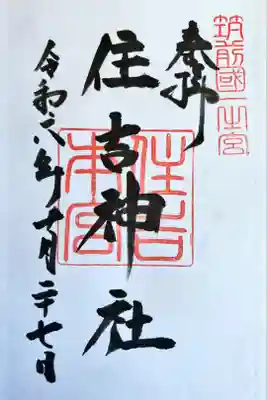 筑前國一之宮
奉拝
住吉神社
住吉本宮
令和六年十月二十七日